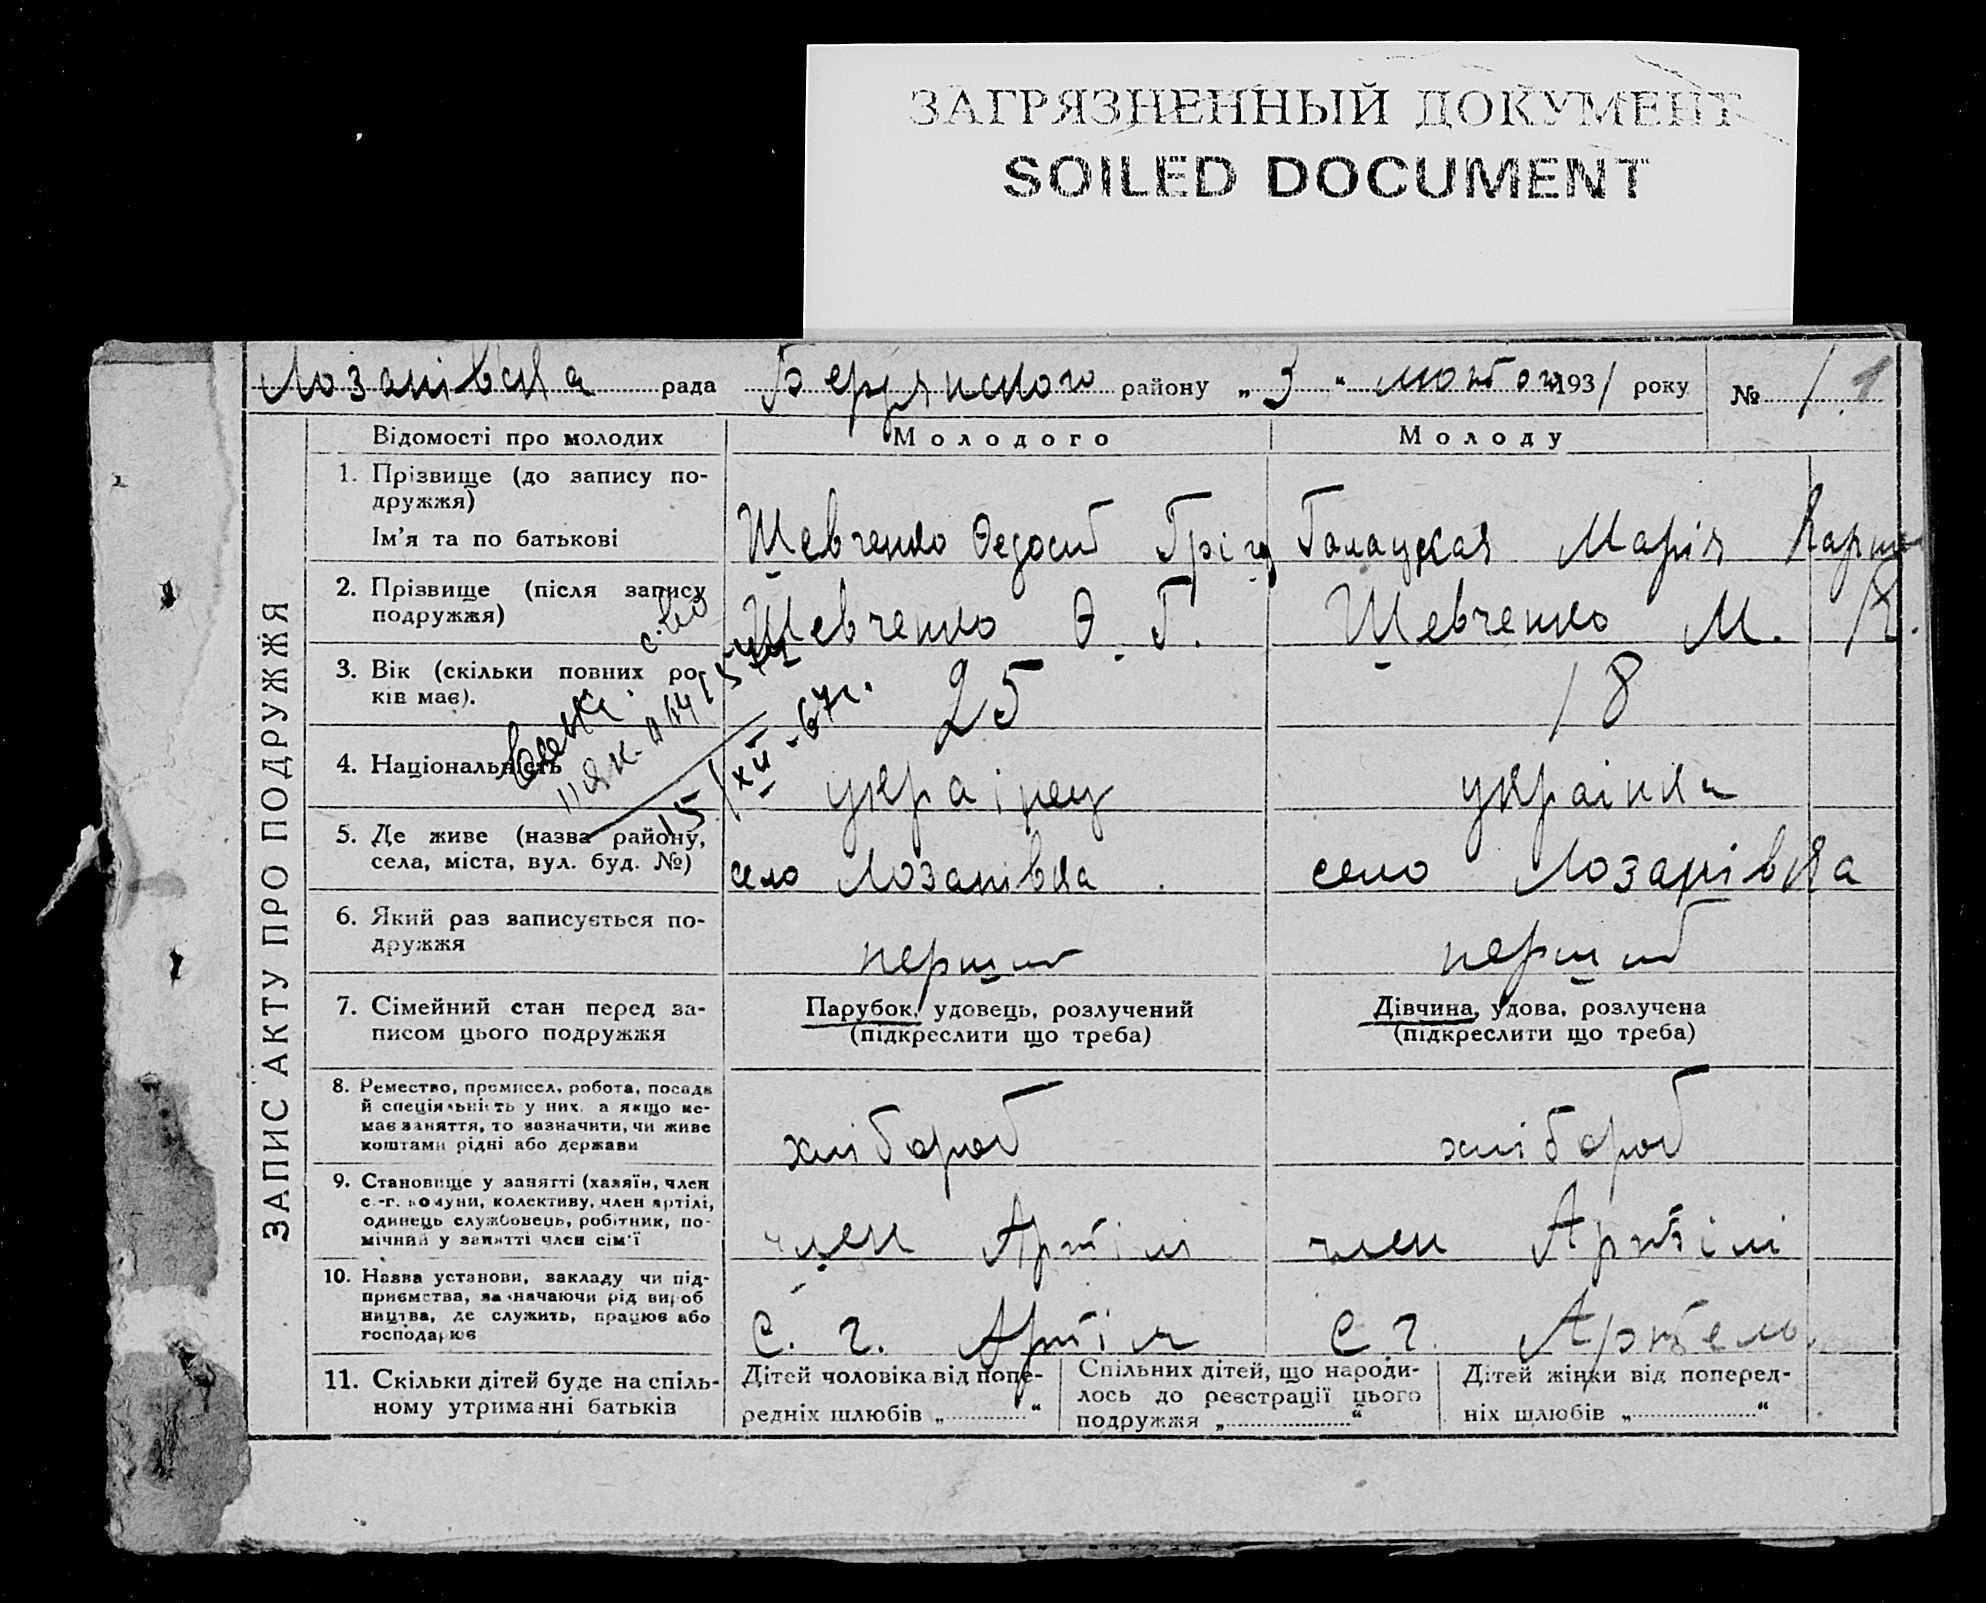 ЗАГРЯЗНЕННЫЙ ДОКУМЕНТ
SOILED DOCUMENT
Лозанівска рада Бердянского району „ 3 “ лютого 1931 року № 1 1
ЗАПИС АКТУ ПРО ПОДРУЖЖЯ
Відомості про молодих Молодого Молоду
1. Прізвище (до запису по-
дружжя)
Ім’я та по батькові
Шевченко Федосий Гріг Галацкая Марія
2. Прізвище (після запису
подружжя)
Шевченко Ф. Г. Шевченко М. К.
3. Вік (скільки повних ро-
ків має).
25 18
15/XII-67г.
4. Національність
украінец украінка
5. Де живе (назва району,
села, міста, вул. буд. №)
село Лозанівка село Лозанівка
6. Який раз записується по-
дружжя
перший перший
7. Сімейний стан перед за-
писом цього подружжя
Парубок, удовець, розлучений
(підкреслити що треба)
Дівчина, удова, розлучена
(підкреслити що треба)
8. Ремество, промисел, робота, посада
й спеціяльність у них, а якщо не-
має заняття, то зазначити, чи живе
коштами рідні або держави
хлібороб хлібороб
9. Становище у занятті (хазяїн, член
с.-г. комуни, колективу, член артілі,
одинець службовець, робітник, по-
мічний у занятті член сім’ї
член Артілі член Артілі
10. Назва установи, закладу чи під-
приємства, зазначаючи рід вироб
ництва, де служить, працює або
господарює
С. г. Артіль С. г. Артель
11. Скільки дітей буде на спіль-
ному утриманні батьків
Дітей чоловіка від попе-
редніх шлюбів „ “
Спільних дітей, що народи-
лось до реєстрації цього
подружжя „ “
Дітей жінки від поперед-
ніх шлюбів „ “